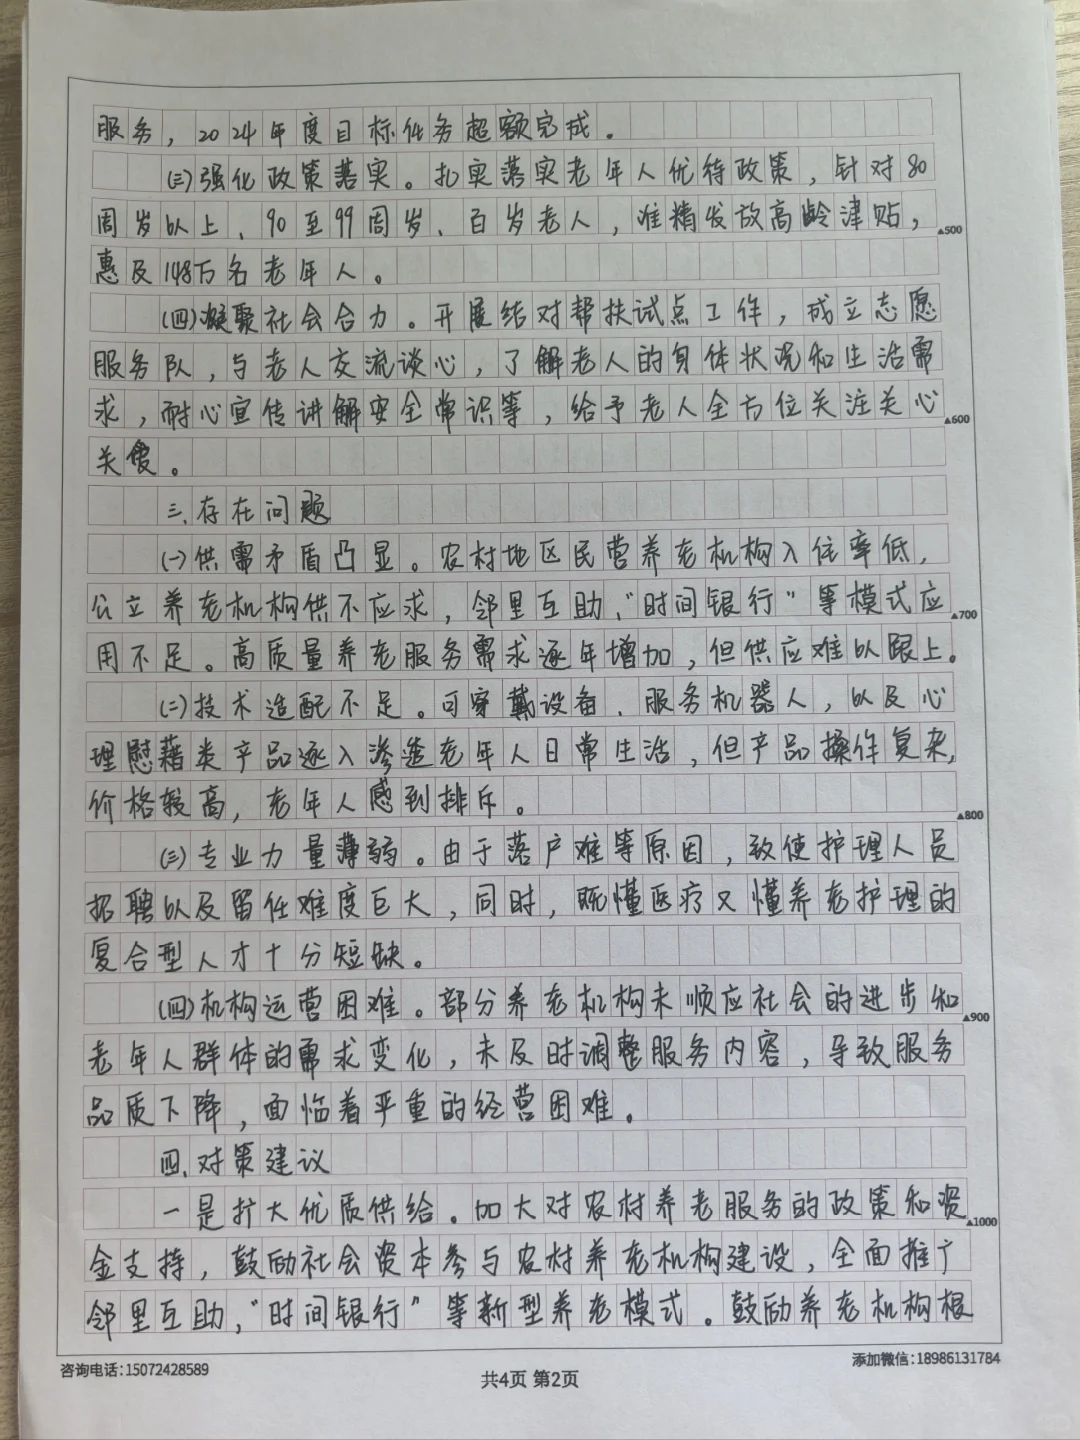 服务，2024年度目标任务超额完成。
(三)强化政策落实。扎实落实老年人优待政策，针对80
周岁以上、90至99周岁、百岁老人，准精发放高龄津贴，
▲500
惠及148万名老年人。
(四)凝聚社会合力。开展结对帮扶试点工作，成立志愿
服务队，与老人交流谈心，了解老人的身体状况和生活需
求，耐心宣传讲解安全常识等，给予老人全方位关注关心
▲600
关爱。
三、存在问题
(一)供需矛盾凸显。农村地区民营养老机构入住率低，
公立养老机构供不应求，邻里互助、“时间银行”等模式应
▲700
用不足。高质量养老服务需求逐年增加，但供应难以跟上。
(二)技术适配不足。可穿戴设备、服务机器人，以及心
理慰藉类产品逐入渗透老年人日常生活，但产品操作复杂，
价格较高，老年人感到排斥。
▲800
(三)专业力量薄弱。由于落户难等原因，致使护理人员
招聘以及留任难度巨大，同时，既懂医疗又懂养老护理的
复合型人才十分短缺。
(四)机构运营困难。部分养老机构未顺应社会的进步和
▲900
老年人群体的需求变化，未及时调整服务内容，导致服务
品质下降，面临着严重的经营困难。
四、对策建议
一是扩大优质供给。加大对农村养老服务的政策和资
▲1000
金支持，鼓励社会资本参与农村养老机构建设，全面推广
邻里互助、“时间银行”等新型养老模式。鼓励养老机构根
咨询电话：15072428589
共4页 第2页
添加微信：18986131784